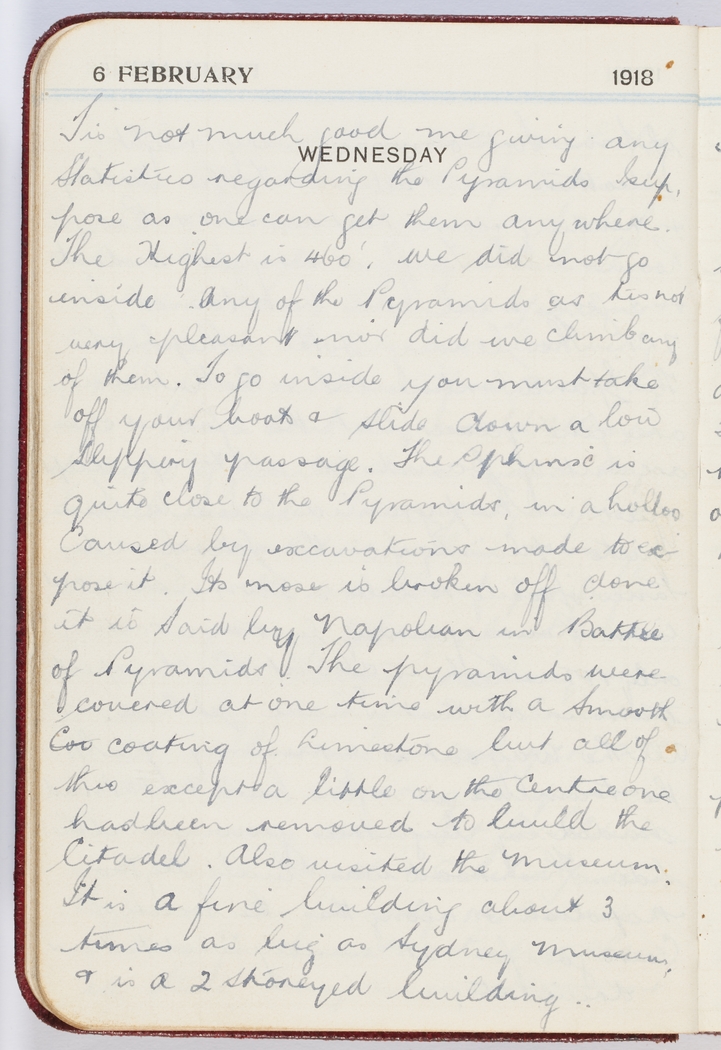 6 FEBRUARY 1918
WEDNESDAY
Tis not much good me giving any
Statistics regarding the Pyramids I sup,
pose as one can get them anywhere.
The Highest is 460'. we did not go
inside any of the Pyramids as tis not
very pleasant nor did we climb any
of them. To go inside you must take
off your boots & slide down a low
slippery passage. The Sphinx is
quite close to the Pyramids, in a hollow
Caused by excavations made to ex-
pose it. Its nose is broken off done
it is said by Napolean in Battle
of Pyramids. The pyramids were
covered at one time with a Smooth
Coo coating of Limestone but all of
this except a little on the Centre one
had been removed to build the
Citadel. Also visited the Museum.
It is a fine building about 3
times as big as Sydney Museum,
& is a 2 storeyed building..